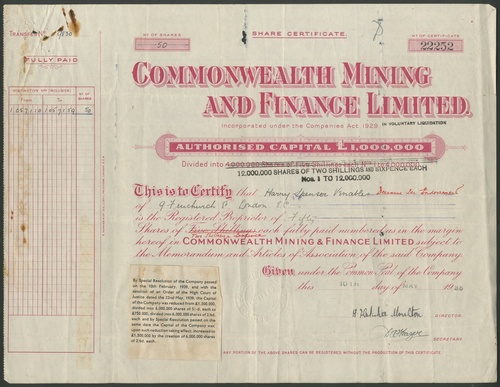 SHARE CERTIFICATE.
TRANSFER No.
No OF SHARES
50
No OF CERTIFICATE
22252
FULLY PAID
COMMONWEALTH MINING
AND FINANCE LIMITED.
Incorporated under the Companies Act 1929 IN VOLUNTARY LIQUIDATION
AUTHORISED CAPITAL £1,000,000
Divided into 4,000,000 Shares of Five Shillings each
12,000,000 SHARES OF TWO SHILLINGS AND SIXPENCE EACH
Nos. 1 TO 12,000,000
DISTINCTIVE Nos (INCLUSIVE)
No OF SHARES
From
To
50
This is to Certify that Harry Spencer Venables
of 9 Fenchurch St London E.C.
is the Registered Proprietor of Fifty
Shares of Two Shillings and Sixpence each fully paid numbered as in the margin
hereof in COMMONWEALTH MINING & FINANCE LIMITED subject to
the Memorandum and Articles of Association of the said Company.
Given under the Common Seal of the Company
this day of MAY 19
By Special Resolution of the Company
passed on the 10th February, 1939, and with the
sanction of an Order of the High Court of
Justice dated the 22nd May, 1939, the Capital
of the Company was reduced from £1,500,000,
divided into 6,000,000 shares of 5/- each, to
£750,000, divided into 6,000,000 shares of 2/6d.
each and by Special Resolution passed on the
same date the Capital of the Company was
upon such reduction taking effect, increased to
£1,500,000 by the creation of 6,000,000 shares
of 2/6d. each.
DIRECTOR
SECRETARY
ANY PORTION OF THE ABOVE SHARES CAN BE REGISTERED WITHOUT THE PRODUCTION OF THIS CERTIFICATE.